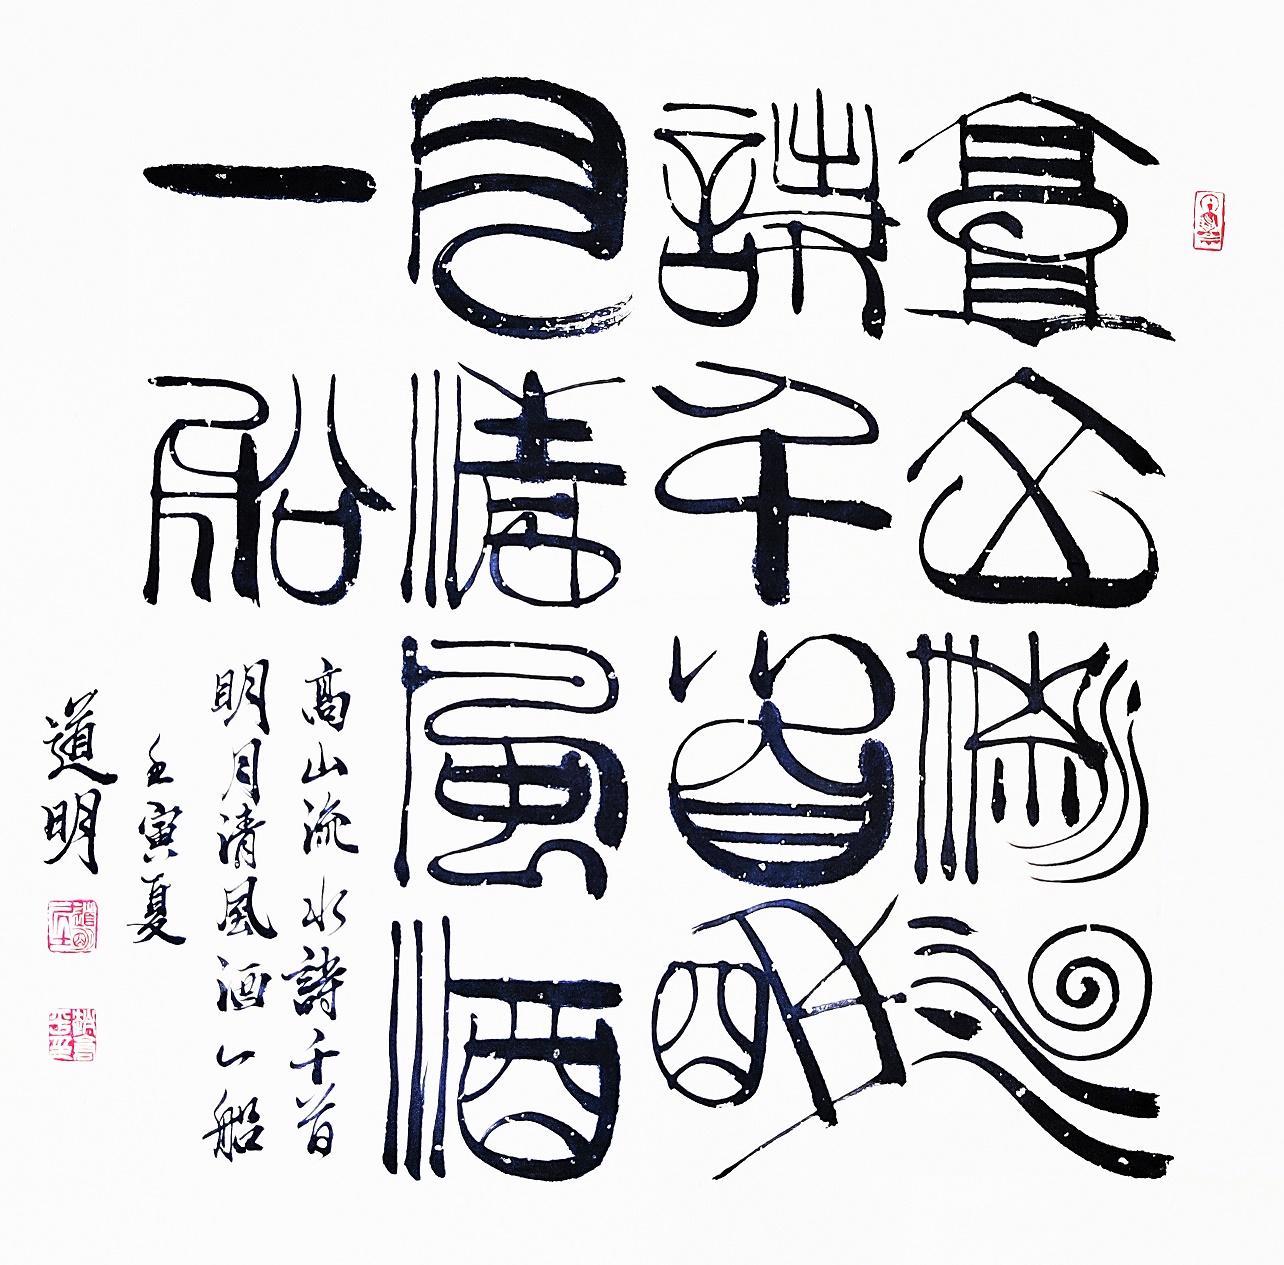 高山流水
詩千首明
月清風酒
一船
高山流水詩千首
明月清風酒一船
壬寅夏
道明